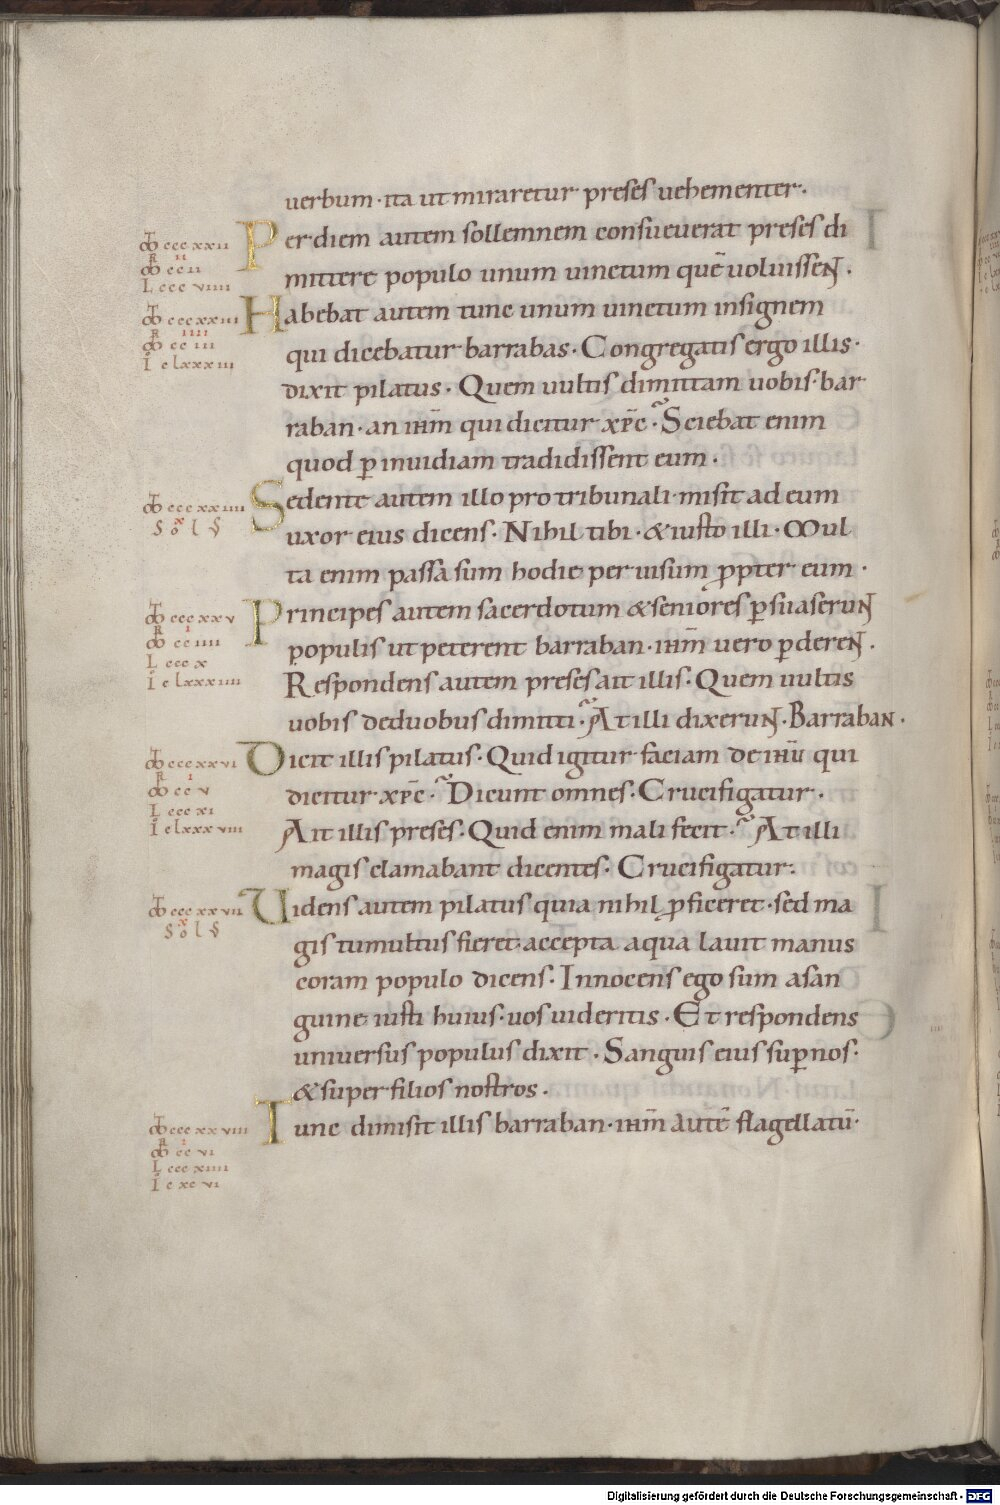 uerbum · ita ut miraretur preses uehementer ·
Per diem autem sollemnem consueuerat preses di
mittere populo unum uinctum quē uoluissent ·
Habebat autem tunc unum uinctum insignem
qui dicebatur barrabas · Congregatis ergo illis ·
dixit pilatus · Quem uultis dimittam uobis · bar
raban · an ihm̄ qui dicitur xp̄c · Sciebat enim
quod ꝑ inuidiam tradidissent eum ·
Sedente autem illo pro tribunali · misit ad eum
uxor eius dicens · Nihil tibi · & iusto illi · Mul
ta enim passa sum hodie per uisum ꝓpter eum ·
Principes autem sacerdotum & seniores ꝑsuaserunt
populis ut peterent barraban · ihm̄ uero ꝑderent ·
Respondens autem preses ait illis · Quem uultis
uobis de duobus dimitti · At illi dixerunt · Barraban ·
Dicit illis pilatus · Quid igitur faciam de ihū qui
dicitur xp̄c · Dicunt omnes · Crucifigatur ·
Ait illis preses · Quid enim mali fecit · At illi
magis clamabant dicentes · Crucifigatur ·
Uidens autem pilatus quia nihil ꝓficeret · sed ma
gis tumultus fieret · accepta aqua lauit manus
coram populo dicens · Innocens ego sum a san
guine iusti huius · uos uideritis · Et respondens
uniuersus populus dixit · Sanguis eius suꝑ nos ·
& super filios nostros ·
Tunc dimisit illis barraban · ihm̄ autē flagellatū ·
Digitalisierung gefördert durch die Deutsche Forschungsgemeinschaft - DFG